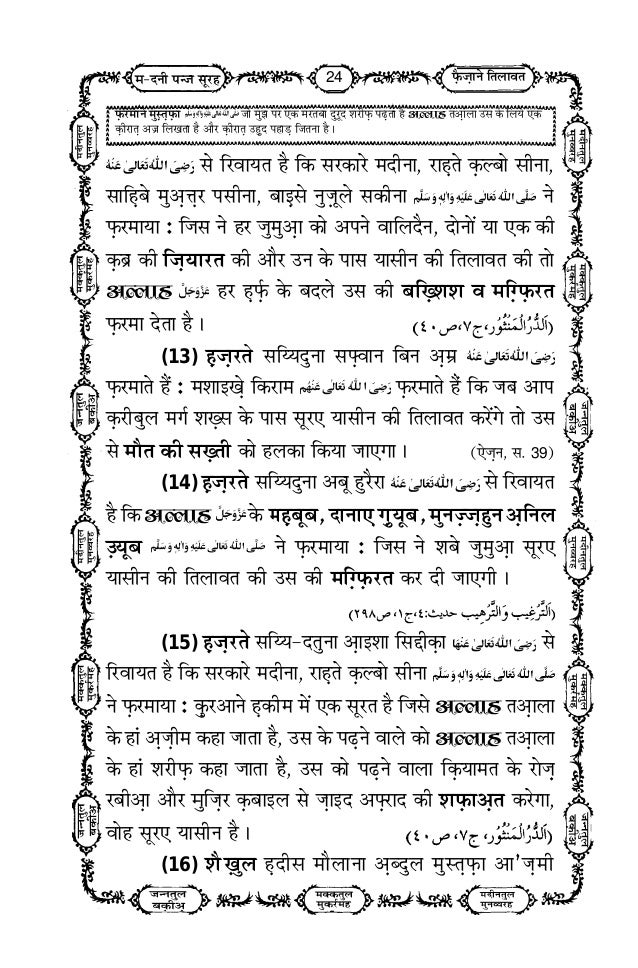 म-दनी पन्ज सूरह
24
फ़ैज़ाने तिलावत
फ़रमाने मुस्तफ़ा صلى الله تعالى عليه واله وسلم जो मुझ पर एक मरतबा दुरूद शरीफ़ पढ़ता है अल्लाह तआ़ला उस के लिये एक
क़ीरात़ अज्र लिखता है और क़ीरात़ उहुद पहाड़ जितना है ।
رَضِىَ اللّٰهُ تَعَالٰى عَنْهُ से रिवायत है कि सरकारे मदीना, राह़ते क़ल्बो सीना,
साहिबे मुअ़त्तर पसीना, बाइसे नुज़ूले सकीना صَلَّى اللّٰهُ تَعَالٰى عَلَيْهِ وَاٰلِهٖ وَسَلَّم ने
फ़रमाया : जिस ने हर जुमुआ़ को अपने वालिदैन, दोनों या एक की
क़ब्र की ज़ियारत की और उन के पास यासीन की तिलावत की तो
अल्लाह عَزَّوَجَلَّ हर ह़र्फ़ के बदले उस की बख़्शिश व मग़्फ़िरत
फ़रमा देता है ।
(اَلدُّرُّالْمَنْثُوْر، ج٧، ص٤٠)
(13) ह़ज़रते सय्यिदुना सफ़्वान बिन अ़म्र رَضِىَ اللّٰهُ تَعَالٰى عَنْهُ
फ़रमाते हैं : मशाइख़े किराम رَضِىَ اللّٰهُ تَعَالٰى عَنْهُم फ़रमाते हैं कि जब आप
क़रीबुल मर्ग शख़्स के पास सूरए यासीन की तिलावत करेंगे तो उस
से मौत की सख़्ती को हलका किया जाएगा ।
(ऐज़न, स. 39)
(14) ह़ज़रते सय्यिदुना अबू हुरैरा رَضِىَ اللّٰهُ تَعَالٰى عَنْهُ से रिवायत
है कि अल्लाह عَزَّوَجَلَّ के महबूब, दानाए ग़ुयूब, मुनज़्ज़हुन अ़निल
उ़यूब صَلَّى اللّٰهُ تَعَالٰى عَلَيْهِ وَاٰلِهٖ وَسَلَّم ने फ़रमाया : जिस ने शबे जुमुआ़ सूरए
यासीन की तिलावत की उस की मग़्फ़िरत कर दी जाएगी ।
(اَلتَّرْغِيب وَالتَّرْهِيب حديث:٤، ج١، ص٢٩٨)
(15) ह़ज़रते सय्यि-दतुना आ़इशा सिद्दीक़ा رَضِىَ اللّٰهُ تَعَالٰى عَنْهَا से
रिवायत है कि सरकारे मदीना, राह़ते क़ल्बो सीना صَلَّى اللّٰهُ تَعَالٰى عَلَيْهِ وَاٰلِهٖ وَسَلَّم
ने फ़रमाया : कुरआने ह़कीम में एक सूरत है जिसे अल्लाह तआ़ला
के हां अ़ज़ीम कहा जाता है, उस के पढ़ने वाले को अल्लाह तआ़ला
के हां शरीफ़ कहा जाता है, उस को पढ़ने वाला क़ियामत के रोज़
रबीआ़ और मुज़िर क़बाइल से ज़ाइद अफ़्राद की शफ़ाअ़त करेगा,
वोह सूरए यासीन है ।
(اَلدُّرُّالْمَنْثُوْر، ج٧، ص٤٠)
(16) शैख़ुल ह़दीस मौलाना अ़ब्दुल मुस्तफ़ा आ'ज़मी
मदीनतुल
मुनव्वरह
मक्कतुल
मुकर्रमह
जन्नतुल
बक़ीअ़
मदीनतुल
मुनव्वरह
मक्कतुल
मुकर्रमह
जन्नतुल
बक़ीअ़
मदीनतुल
मुनव्वरह
मक्कतुल
मुकर्रमह
जन्नतुल
बक़ीअ़
मदीनतुल
मुनव्वरह
मक्कतुल
मुकर्रमह
जन्नतुल
बक़ीअ़
जन्नतुल
बक़ीअ़
मक्कतुल
मुकर्रमह
मदीनतुल
मुनव्वरह